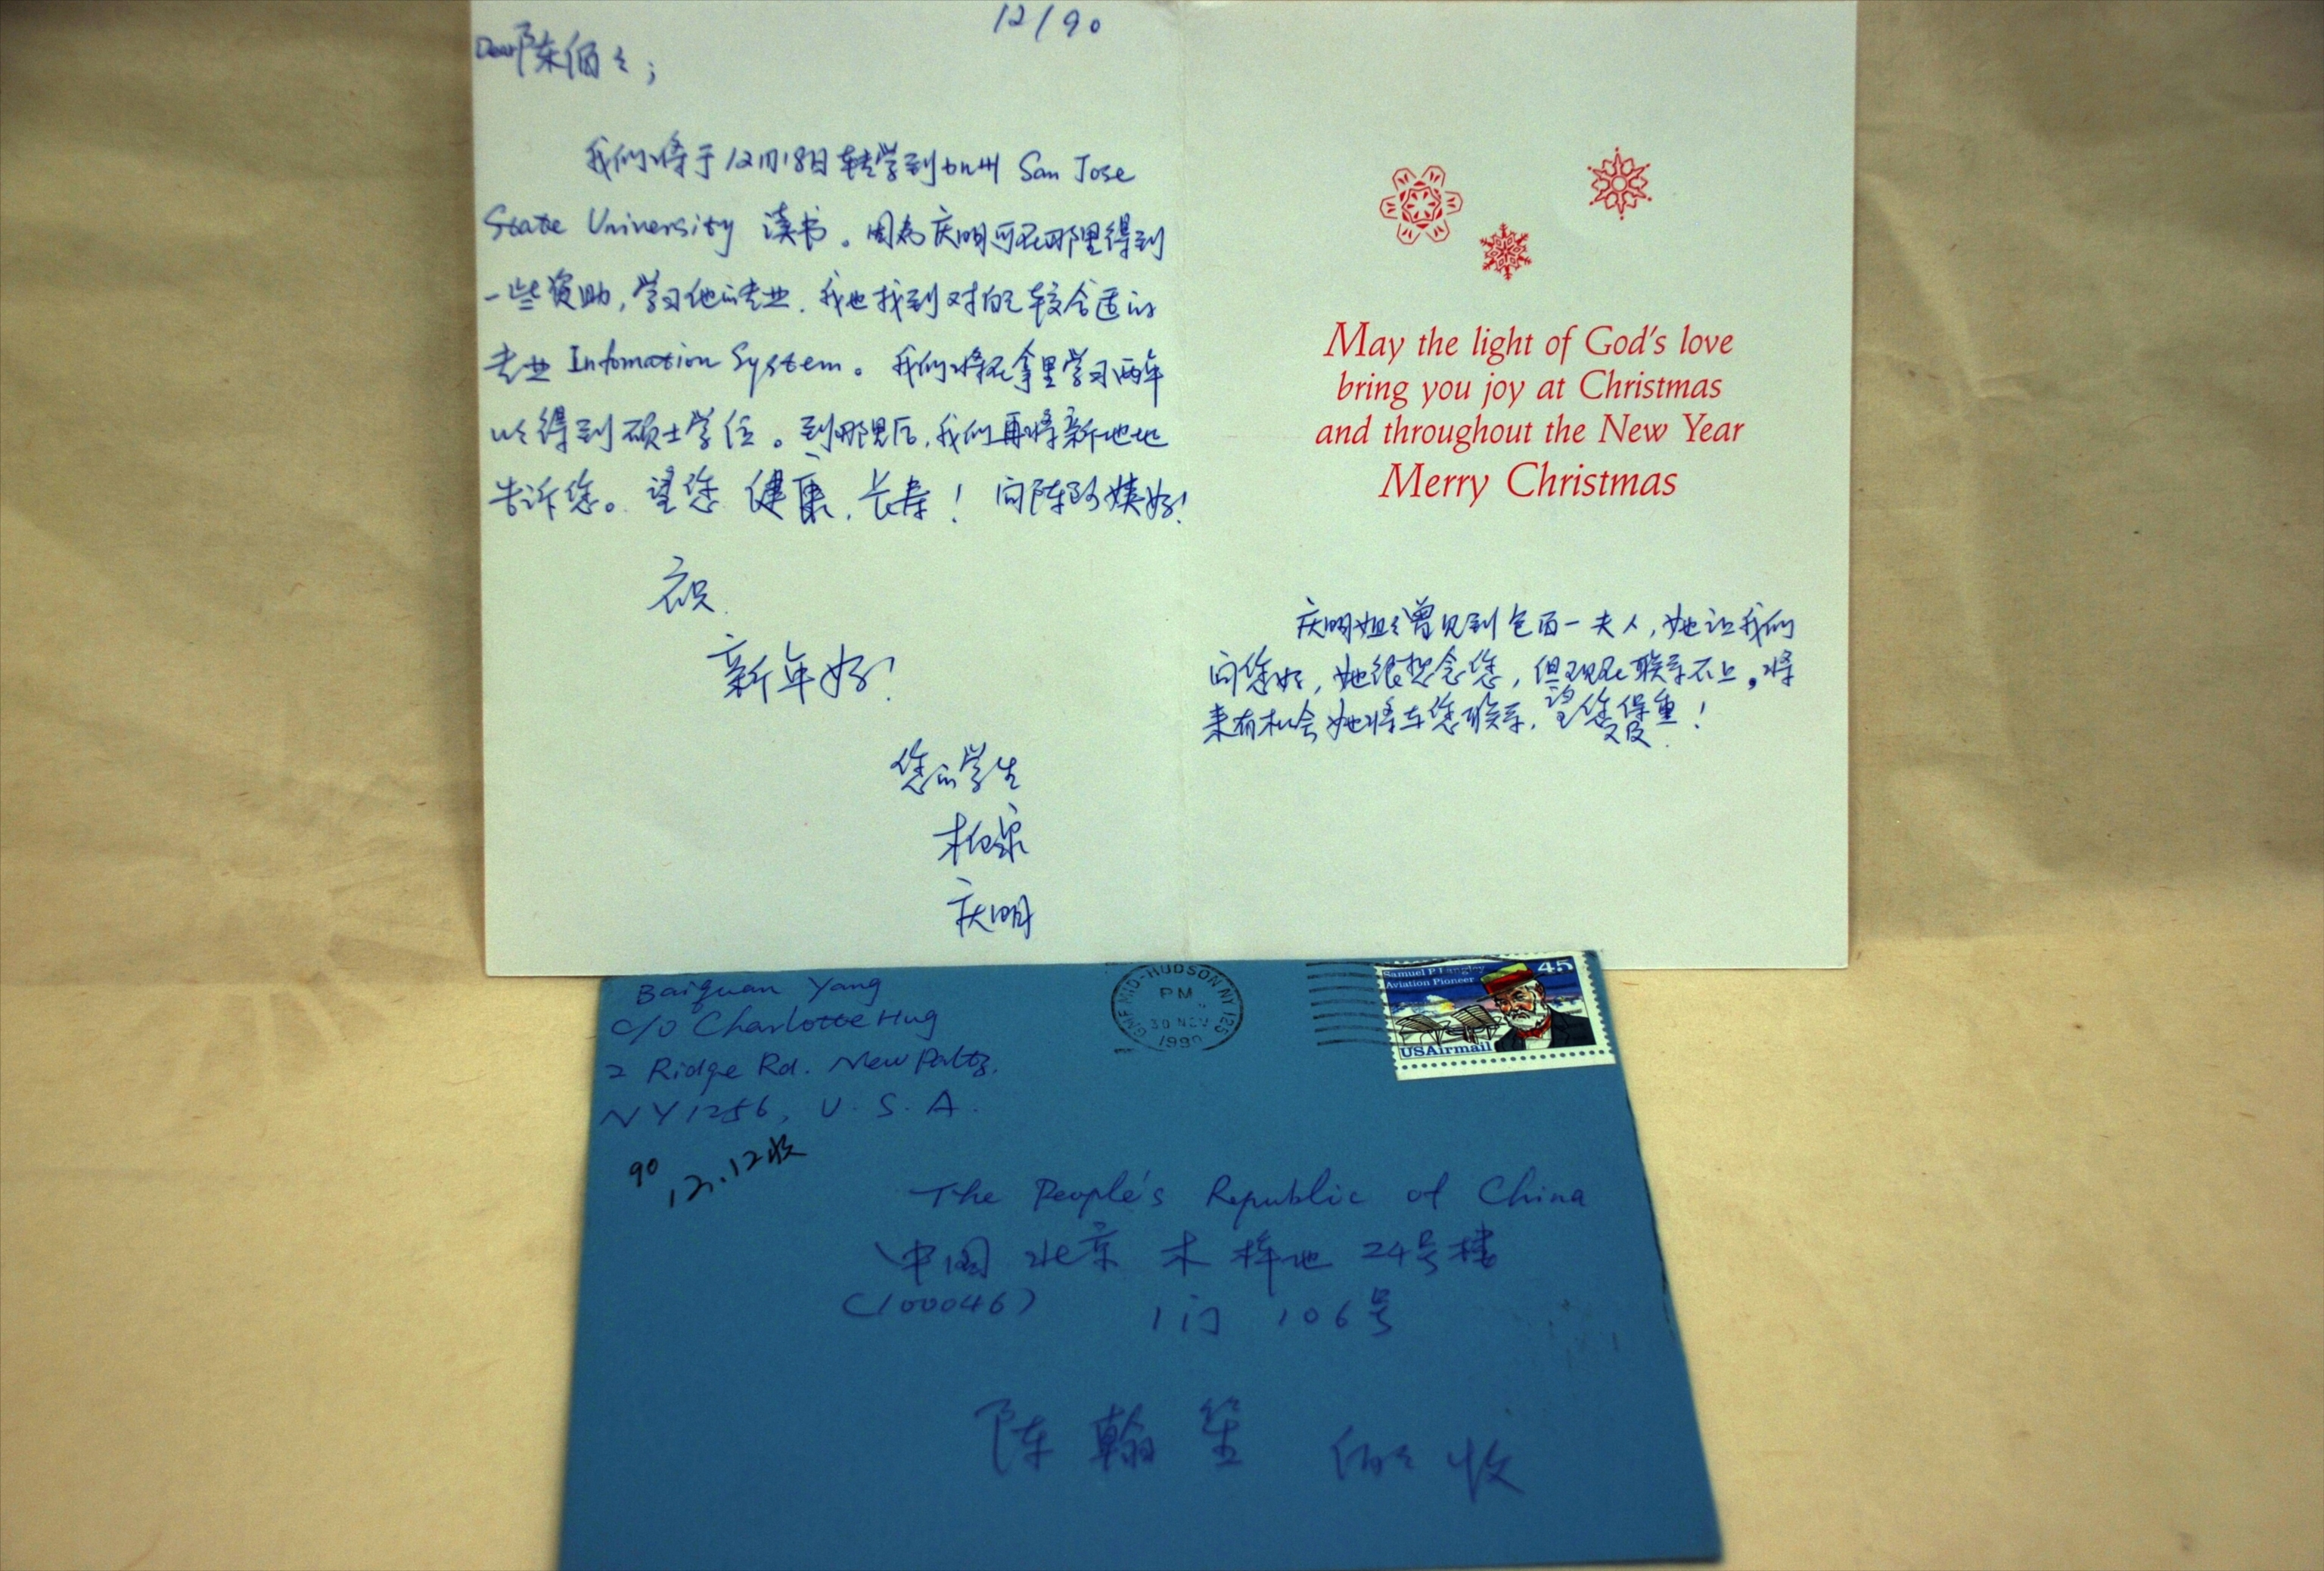 12/90
Dear陈伯々；
我们将于12月18日转学到加州 San Jose
State University 读书。因为庆明可在那里得到
一些资助，学习他的专业．我也找到对自己较合适的
专业 Infomation System。我们将在拿里学习两年
以得到硕士学位。到那里后，我们再将新地址
告诉您。望您 健康．长寿！ 问陈阿姨好！
祝
新年好！
您的学生
柏泉
庆明
May the light of God's love
bring you joy at Christmas
and throughout the New Year
Merry Christmas
庆明姐々曾见到包百一夫人，她让我们
问您好，她很想念您，但现在联系不上。将
来有机会她将与您联系．望您保重！
Baiquan Yang
c/o Charlotte Hug
2 Ridge Rd. New Paltz.
NY 1256, U.S.A.
90 12.12收
GMF MID-HUDSON NY 125
PM
30 NOV
1990
Samuel P Langley
Aviation Pioneer
45
USAirmail
The People's Republic of China
中国 北京 木樨地 24号楼
(100046) 1门 106号
陈翰笙 伯々 收